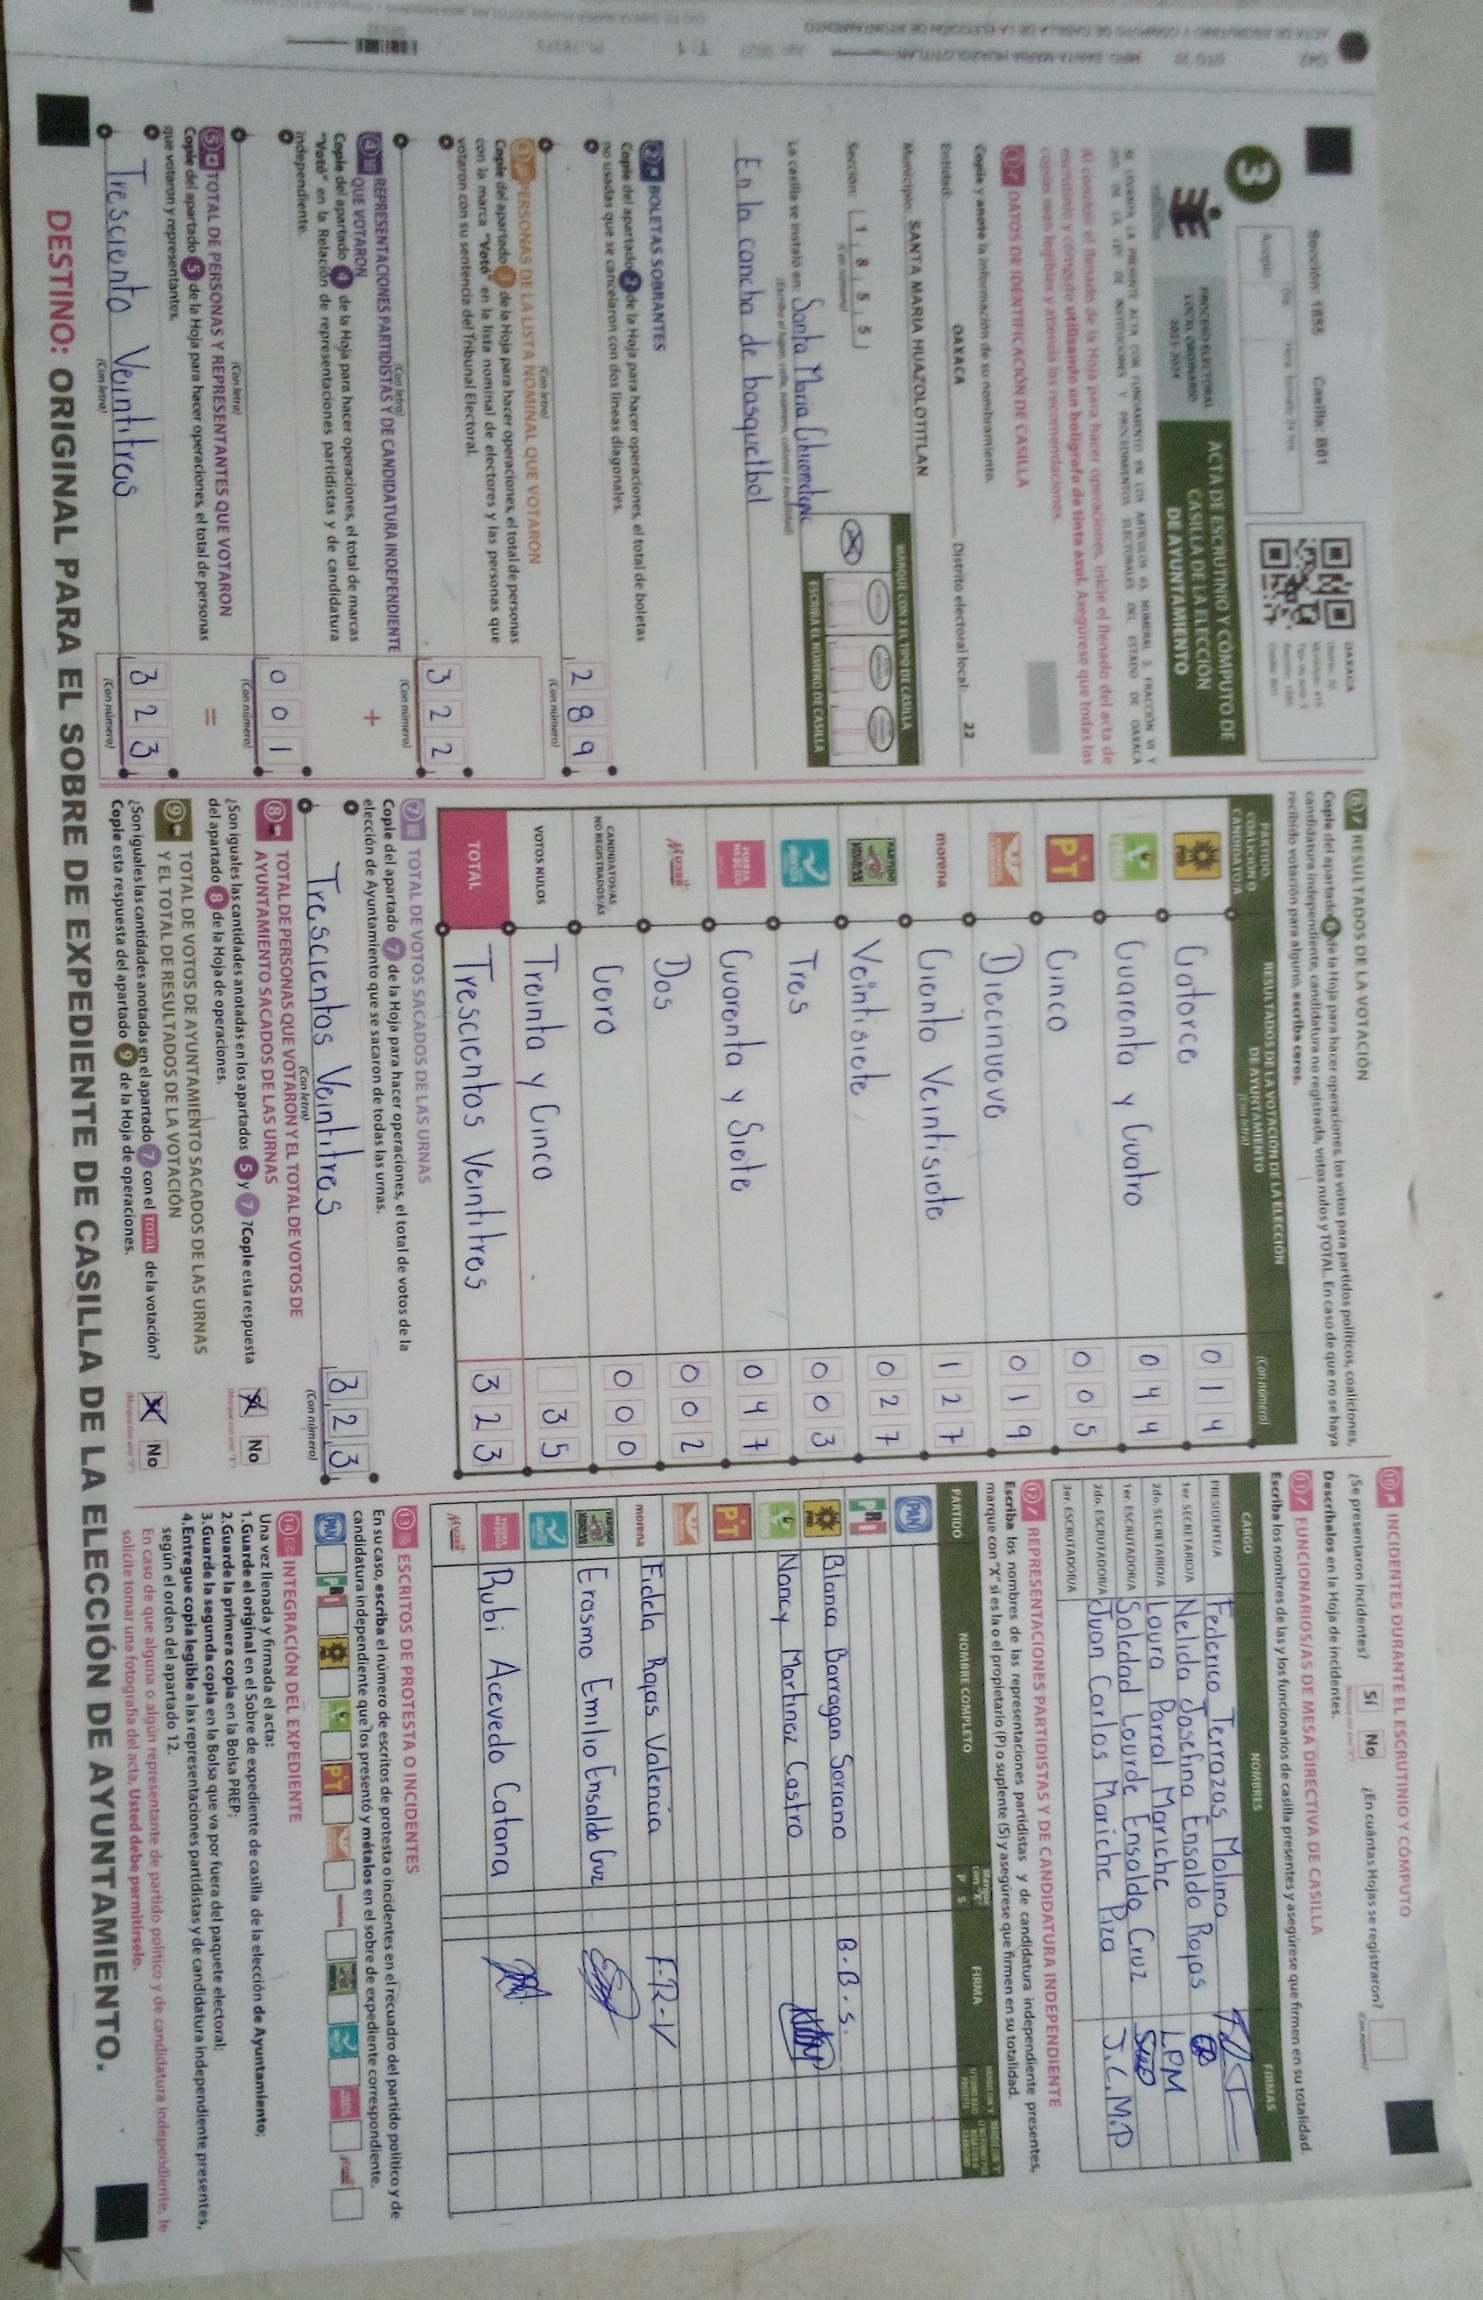 Sección: 1855 Casilla: B01
OAXACA
Acopio
3
PROCESO ELECTORAL
LOCAL ORDINARIO
2023-2024
ACTA DE ESCRUTINIO Y CÓMPUTO DE
CASILLA DE LA ELECCIÓN
DE AYUNTAMIENTO
Al concluir el llenado de la Hoja para hacer operaciones, inicie el llenado del acta de
escrutinio y cómputo utilizando un bolígrafo de tinta azul. Asegúrese que todas las
copias sean legibles y atienda las recomendaciones.
1 DATOS DE IDENTIFICACIÓN DE CASILLA
Copie y anote la información de su nombramiento.
Entidad: OAXACA Distrito electoral local: 22
Municipio: SANTA MARIA HUAZOLOTITLAN
Sección: 1 8 5 5
(Con número)
MARQUE CON X EL TIPO DE CASILLA
ESCRIBA EL NÚMERO DE CASILLA
La casilla se instaló en: Santa Maria Chicometepec
En la cancha de basquetbol
2 BOLETAS SOBRANTES
Copie del apartado 2 de la Hoja para hacer operaciones, el total de boletas
no usadas que se cancelaron con dos líneas diagonales.
289
(Con letra) (Con número)
3 PERSONAS DE LA LISTA NOMINAL QUE VOTARON
Copie del apartado 3 de la Hoja para hacer operaciones, el total de personas
con la marca "Votó" en la lista nominal de electores y las personas que
votaron con su sentencia del Tribunal Electoral.
322
(Con letra) (Con número)
+
4 REPRESENTACIONES PARTIDISTAS Y DE CANDIDATURA INDEPENDIENTE
QUE VOTARON
Copie del apartado 4 de la Hoja para hacer operaciones, el total de marcas
"Votó" en la Relación de representaciones partidistas y de candidatura
independiente.
001
(Con letra) (Con número)
=
5 TOTAL DE PERSONAS Y REPRESENTANTES QUE VOTARON
Copie del apartado 5 de la Hoja para hacer operaciones, el total de personas
que votaron y representantes.
Tresciento Veintitras 323
(Con letra) (Con número)
6 RESULTADOS DE LA VOTACIÓN
Copie del apartado 6 de la Hoja para hacer operaciones, los votos para partidos políticos, coaliciones,
candidatura independiente, candidatura no registrada, votos nulos y TOTAL. En caso de que no se haya
recibido votación para alguno, escriba ceros.
PARTIDO, COALICIÓN O CANDIDATO/A
RESULTADOS DE LA VOTACIÓN DE LA ELECCIÓN
DE AYUNTAMIENTO
(Con letra) (Con número)
PRD Catorce 014
VERDE Cuarenta y Cuatro 044
PT Cinco 005
Diecinueve 019
morena Ciento Veintisiete 127
PARTIDO Veintisiete 027
Tres 003
FUERZA MÉXICO Cuarenta y Siete 047
Dos 002
CANDIDATOS/AS NO REGISTRADOS/AS Cero 000
VOTOS NULOS Treinta y Cinco 35
TOTAL Trescientos Veintitres 323
7 TOTAL DE VOTOS SACADOS DE LAS URNAS
Copie del apartado 7 de la Hoja para hacer operaciones, el total de votos de la
elección de Ayuntamiento que se sacaron de todas las urnas.
Trescientos Veintitres 323
(Con letra) (Con número)
8 TOTAL DE PERSONAS QUE VOTARON Y EL TOTAL DE VOTOS DE
AYUNTAMIENTO SACADOS DE LAS URNAS
¿Son iguales las cantidades anotadas en los apartados 5 y 7? Copie esta respuesta
del apartado 8 de la Hoja de operaciones. No
9 TOTAL DE VOTOS DE AYUNTAMIENTO SACADOS DE LAS URNAS
Y EL TOTAL DE RESULTADOS DE LA VOTACIÓN
¿Son iguales las cantidades anotadas en el apartado 7 con el TOTAL de la votación?
Copie esta respuesta del apartado 9 de la Hoja de operaciones. No
10 INCIDENTES DURANTE EL ESCRUTINIO Y CÓMPUTO
¿Se presentaron incidentes? Sí No ¿En cuántas Hojas se registraron?
Descríbalos en la Hoja de incidentes.
11 FUNCIONARIOS/AS DE MESA DIRECTIVA DE CASILLA
Escriba los nombres de las y los funcionarios de casilla presentes y asegúrese que firmen en su totalidad.
CARGO NOMBRES FIRMAS
PRESIDENTE/A Federico Terrazas Molina
1er. SECRETARIO/A Nelida Josefina Ensaldo Rojas
2do. SECRETARIO/A Laura Parral Mariche LPM
1er. ESCRUTADOR/A Soledad Lourde Ensaldo Cruz
2do. ESCRUTADOR/A Juan Carlos Mariche Piza J.C.M.P
3er. ESCRUTADOR/A
12 REPRESENTACIONES PARTIDISTAS Y DE CANDIDATURA INDEPENDIENTE
Escriba los nombres de las representaciones partidistas y de candidatura independiente presentes,
marque con "X" si es la o el propietario (P) o suplente (S) y asegúrese que firmen en su totalidad.
PARTIDO NOMBRE COMPLETO P S FIRMA
PAN
PRI
PRD Blanca Barragan Sorriano B.B.S.
VERDE Nancy Martinez Castro
PT
morena Fidela Rojas Valencia F-R-V
PARTIDO Erasmo Emilio Ensaldo Cruz
Rubi Acevedo Catana
13 ESCRITOS DE PROTESTA O INCIDENTES
En su caso, escriba el número de escritos de protesta o incidentes en el recuadro del partido político y de
candidatura independiente que los presentó y métalos en el sobre de expediente correspondiente.
PAN PRI PRD PT morena
14 INTEGRACIÓN DEL EXPEDIENTE
Una vez llenada y firmada el acta:
1.Guarde el original en el Sobre de expediente de casilla de la elección de Ayuntamiento;
2.Guarde la primera copia en la Bolsa PREP;
3.Guarde la segunda copia en la Bolsa que va por fuera del paquete electoral;
4.Entregue copia legible a las representaciones partidistas y de candidatura independiente presentes,
según el orden del apartado 12.
En caso de que alguna o algún representante de partido político y de candidatura independiente, le
solicite tomar una fotografía del acta, Usted debe permitírselo.
DESTINO: ORIGINAL PARA EL SOBRE DE EXPEDIENTE DE CASILLA DE LA ELECCIÓN DE AYUNTAMIENTO.